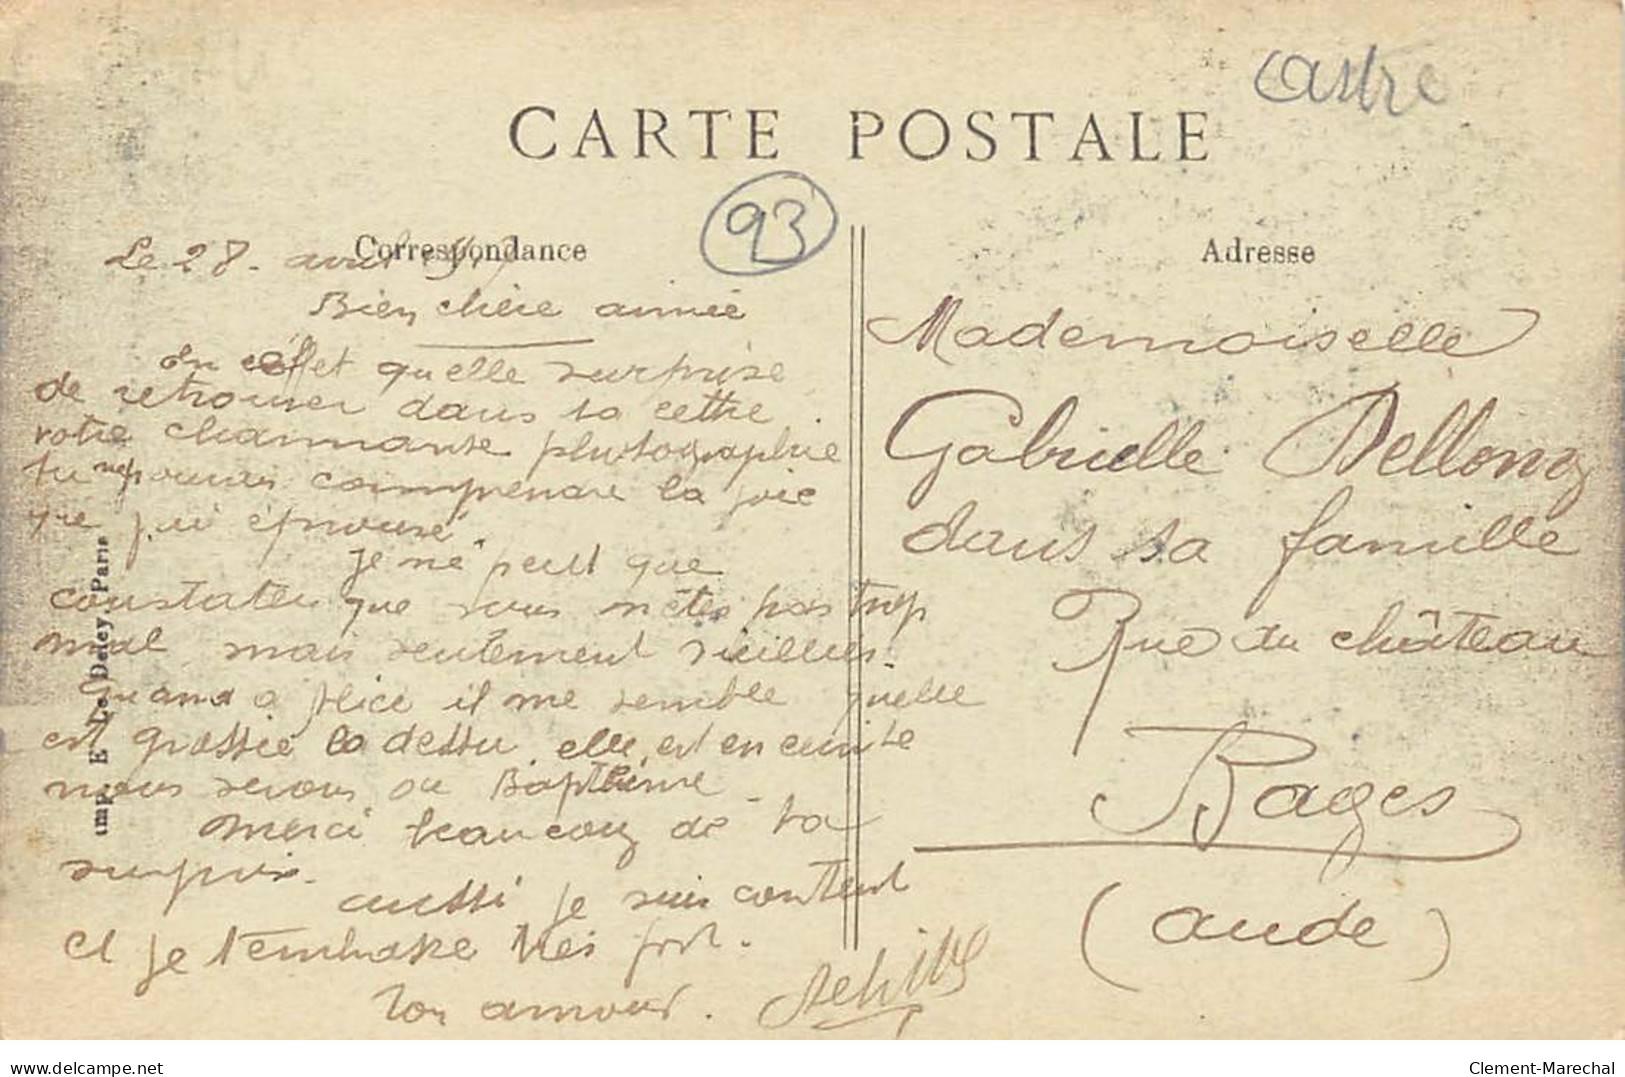 castre
CARTE POSTALE
93
Correspondance
Adresse
Le 28 avril
Bien chère aimée
En effet quelle surprise
de retrouver dans ta lettre
votre charmante photographie
tu ne pourras comprendre la joie
que j'ai éprouvé.
Je ne peut que
constater que vous n'êtes pas trop
mal mais seulement vieillies.
Quand a félice il me semble quelle
est grossie la dessu elle est enceinte
nous serons au Baptême
Merci beaucoup de ta
surprise.
aussi je suis content
et je t'embrasse très fort.
Ton amour. Achille
Imp. E. Le Deley Paris
Mademoiselle
Gabrielle Dellong
dans sa famille
Rue du château
Bages
(aude)
delcampe.net
Clement-Marechal